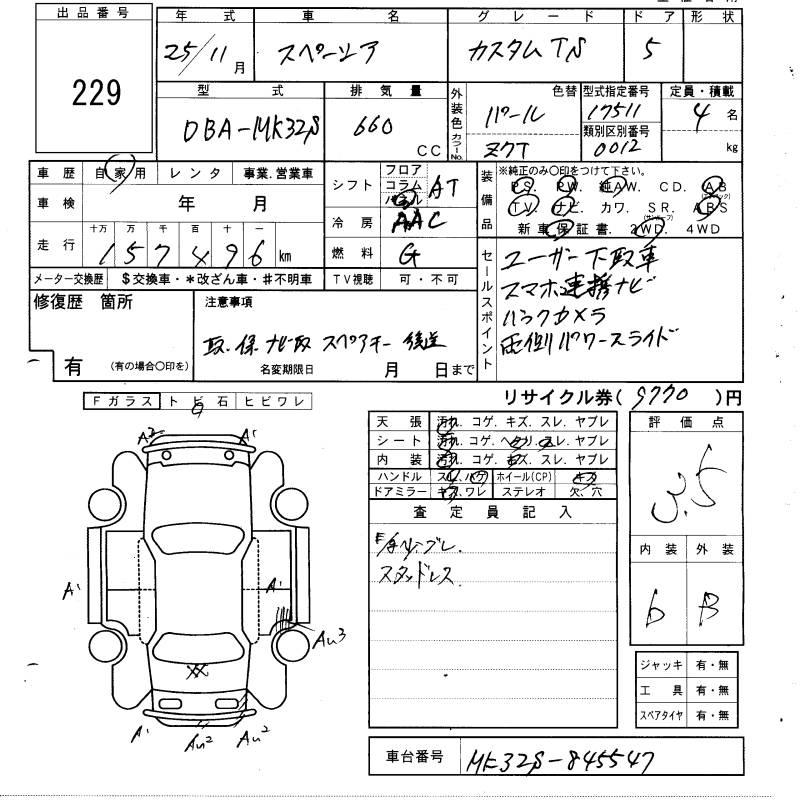 出品番号
229
年式 車名 グレード ドア 形状
25/11月 スペーシア カスタムTS 5
型式 排気量 外装色 カラーNo. 色替 型式指定番号 定員・積載
DBA-MK32S 660 CC パール 17511 4名
類別区別番号
ZCT 0012 kg
車歴 自家用 レンタ 事業.営業車
車検 年 月
走行 十万 万 千 百 十 一
157496 km
メーター交換歴 $交換車・*改ざん車・#不明車
シフト フロア コラム AT
冷房 AAC
燃料 G
TV視聴 可・不可
装備品 ※純正のみ○印をつけて下さい。
PS. PW. 純AW. CD. AB (エアバック)
TV. ナビ. カワ. SR. (サンルーフ) ABS
新車保証書. 2WD. 4WD
セールスポイント
ユーザー下取車
スマホ連携ナビ
バックカメラ
両側パワースライド
修復歴 箇所
有 (有の場合○印を)
注意事項
取.保 ナビ取 スペアキー 後送
名変期限日 月 日まで
リサイクル券( 9770 )円
Fガラス トビ石 ヒビワレ
A2 A1
A1 A1
AU3
A1 AU2 AU2
天張 汚れ. コゲ. キズ. スレ. ヤブレ
シート 汚れ. コゲ. ヘタリ. スレ. ヤブレ
内装 汚れ. コゲ. キズ. スレ. ヤブレ
ハンドル スレ.ハゲ ホイール(CP) キズ
ドアミラー キズ.ワレ ステレオ 欠.穴
査定員記入
スタッドレス
評価点
3.5
内装 外装
b B
ジャッキ 有・無
工具 有・無
スペアタイヤ 有・無
車台番号 MK32S-845547